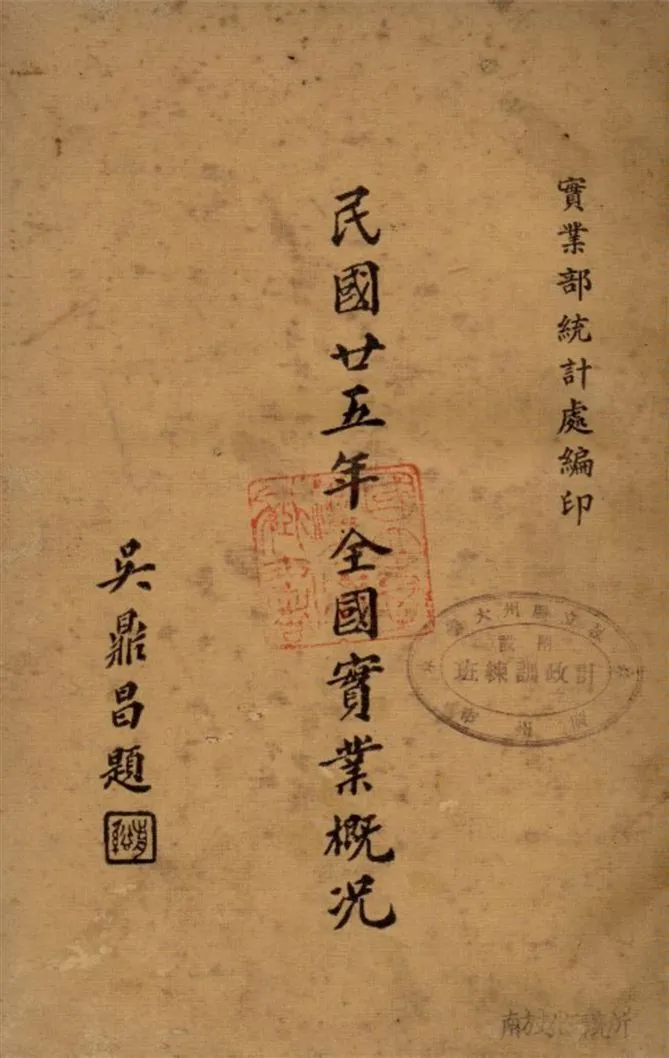 實業部統計處編印
民國廿五年全國實業概況
吳鼎昌題
計政訓練班